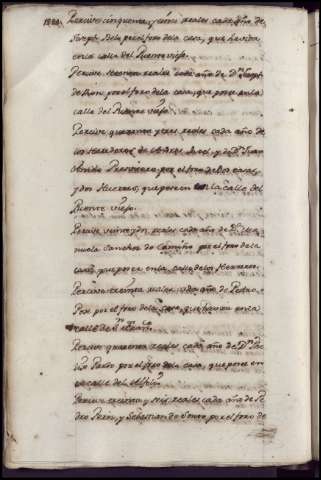 Percivo cinquenta, y cinco reales cada año de
Joseph Bela por el foro de la casa, que havita
en la calle del Puente viejo.
Percivo treinta reales cada año de Dn. Joseph
de por el foro de la casa, que posee en la
calle del Puente viejo.
Percivo quarenta y tres reales cada año de
los Herederos de Andres, y de Dn. Juan
por el foro de dos casas,
y dos Huertos, que poseen en la calle del
Puente viejo.
Percivo veinte y dos reales cada año de Da. Ma
nuela Sanchez de Camiño por el foro de la
casa, que posee en la calle de los Herreros.
Percivo treinta reales cada año de Pedro
Pose por el foro de la casa, que havita en la
calle de
Percivo quarenta reales cada año de Dn.
Pardo por el foro de la casa, que posee en
la calle del
Percivo treinta y seis reales cada año de Pe
dro Perez, y Sebastian de Souto por el foro de